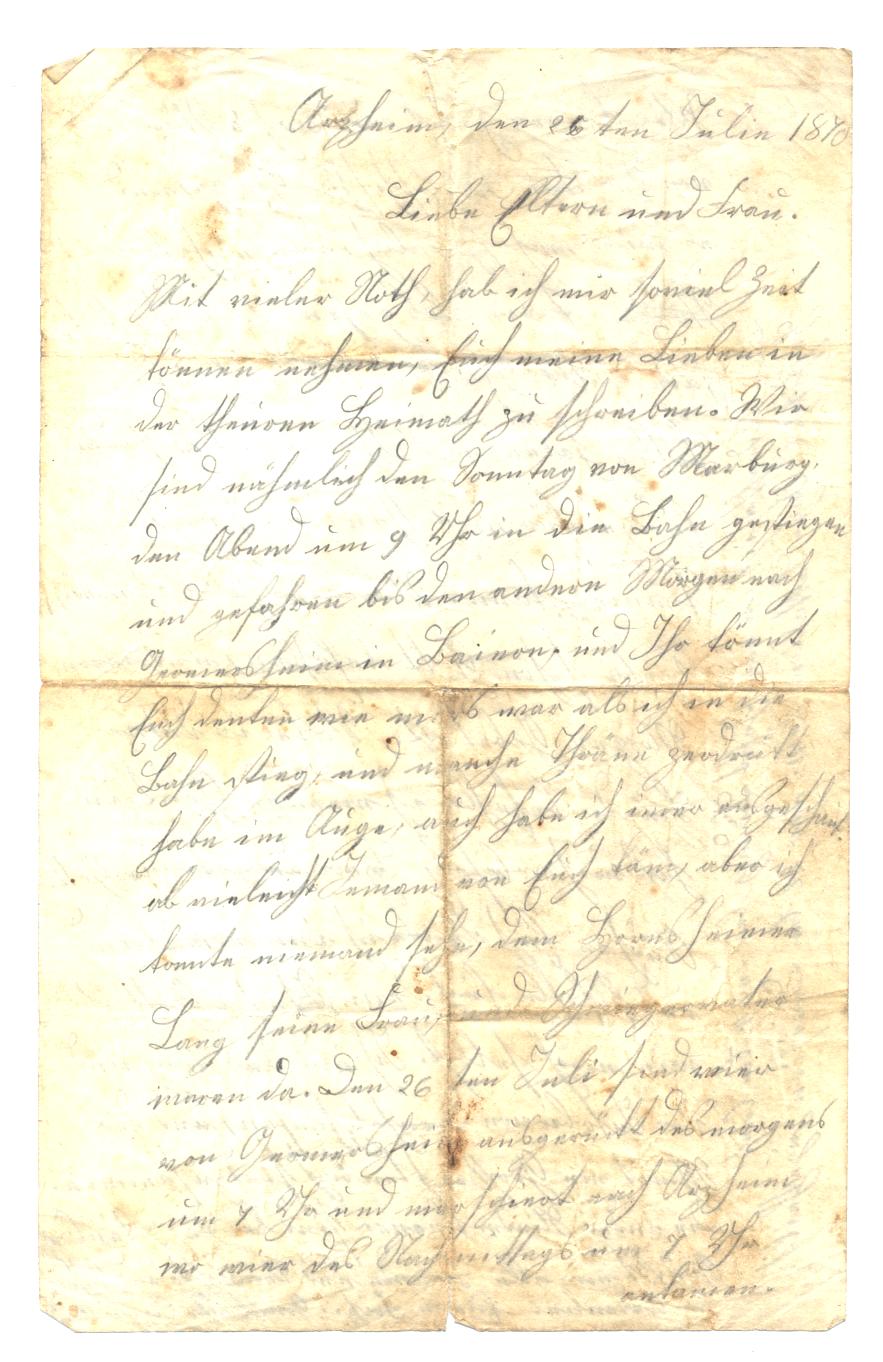 Arzheim, den 26 ten Julie 1870
Liebe Eltern und Frau.
Mit vieler Noth, hab ich mir soviel Zeit
können nehmen, Euch meine Lieben in
der theuren Heimath zu schreiben. Wir
sind nähmlich den Sonntag von Marburg,
den Abend um 9 Uhr in die Bahn gestiegen
und gefahren bis den andern Morgen nach
Germersheim in Baiern, und Ihr könnt
Euch denken wie mirs war als ich in die
Bahn stieg, und manche Thräne zerdrückt
habe im Auge, auch habe ich imer ausgeschaut
ob vieleicht Jemand von Euch käm, aber ich
konnte niemand sehe, dem Hörnsheimer
Lang seine Frau, und Schwiegervater
waren da. Den 26 ten Juli sind wier
von Germersheim ausgerückt des morgens
um 7 Uhr und marschiert nach Arzheim
wo wier des Nachmittags um 7 Uhr
ankamen.